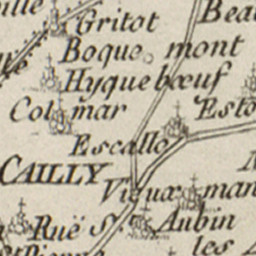 ville
Gritot
Beau
Boque mont
Hyquebœuf
Colmar
Esto
Escalle
CAILLY
Vieux man
Ruë St. Aubin
les